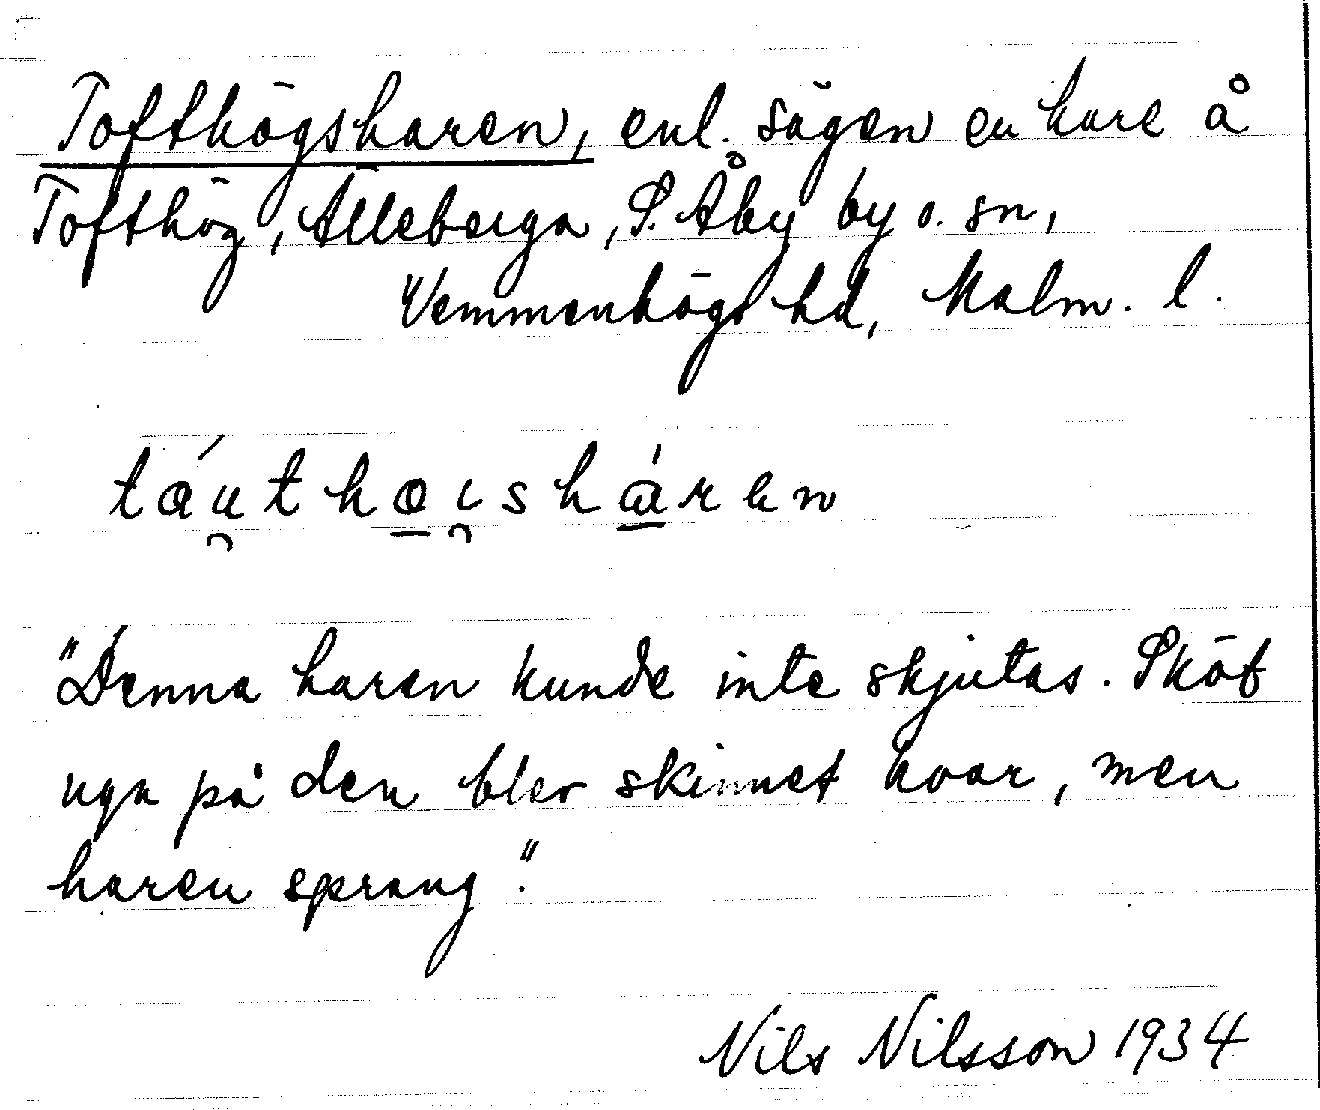 Tofthögsharen, enl. sägen en hare å
Tofthög, Alleberga, S. Åby by o. sn,
Vemmenhögs hd, Malm. l.
táu̯thøi̯sháren
"Denna haren kunde inte skjutas. Sköt
nga på den blev skinnet kvar, men
haren sprang".
Nils Nilsson 1934